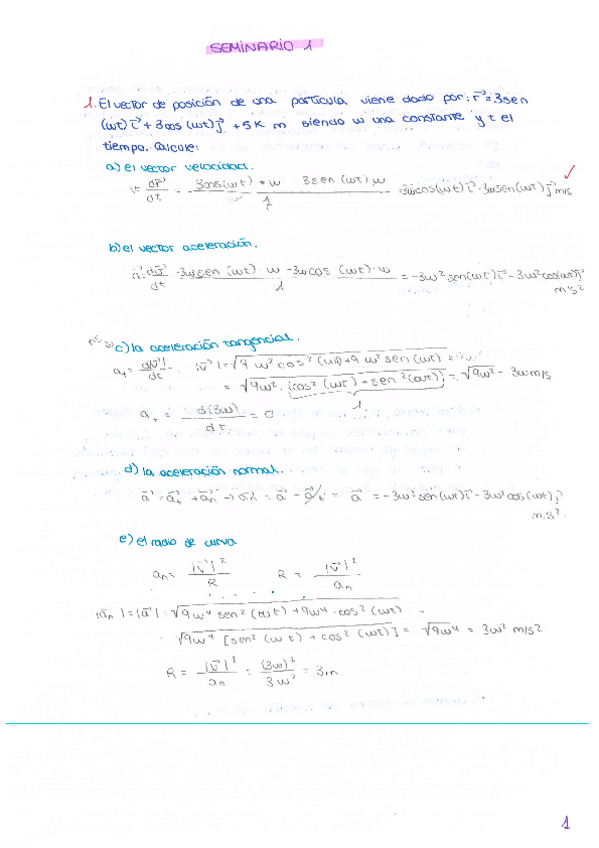 SEMINARIO 1
1. El vector de posición de una partícula viene dado por: r⃗ = 3sen
(wt) i⃗ + 3cos (wt) j⃗ + 5K m siendo w una constante y t el
tiempo. Calcule:
a) el vector velocidad.
v = dr⃗/dt = 3cos(wt) · w 3sen (wt) w / 1 = 3wcos(wt) i⃗ · 3wsen(wt) j⃗ m/s
b) el vector aceleración.
a⃗ = dv⃗/dt = -3wsen (wt) · w - 3w cos (wt) · w / 1 = -3w² sen(wt) i⃗ - 3w² cos(wt) j⃗
m/s²
c) la aceleración tangencial.
a_t = d|v⃗|/dt |v⃗| = √9 w² cos² (wt) + 9 w² sen (wt)
= √9w² · [cos² (wt) + sen² (wt)] = √9w² = 3w m/s
1
a_t = d(3w)/dt = 0
d) la aceleración normal.
a⃗ = a⃗_t + a⃗_n → = a⃗ - a⃗_t = a⃗ = -3w² sen(wt) i⃗ - 3w² cos(wt) j⃗
e) el radio de curva
a_n = |v⃗|²/R R = |v⃗|²/a_n
|a⃗_n| = |a⃗| = √9w⁴ sen² (wt) + 9w⁴ · cos² (wt) =
√9w⁴ [sen² (wt) + cos² (wt)] = √9w⁴ = 3w² m/s2
R = |v⃗|²/a_n = (3w)²/3w² = 3m
1